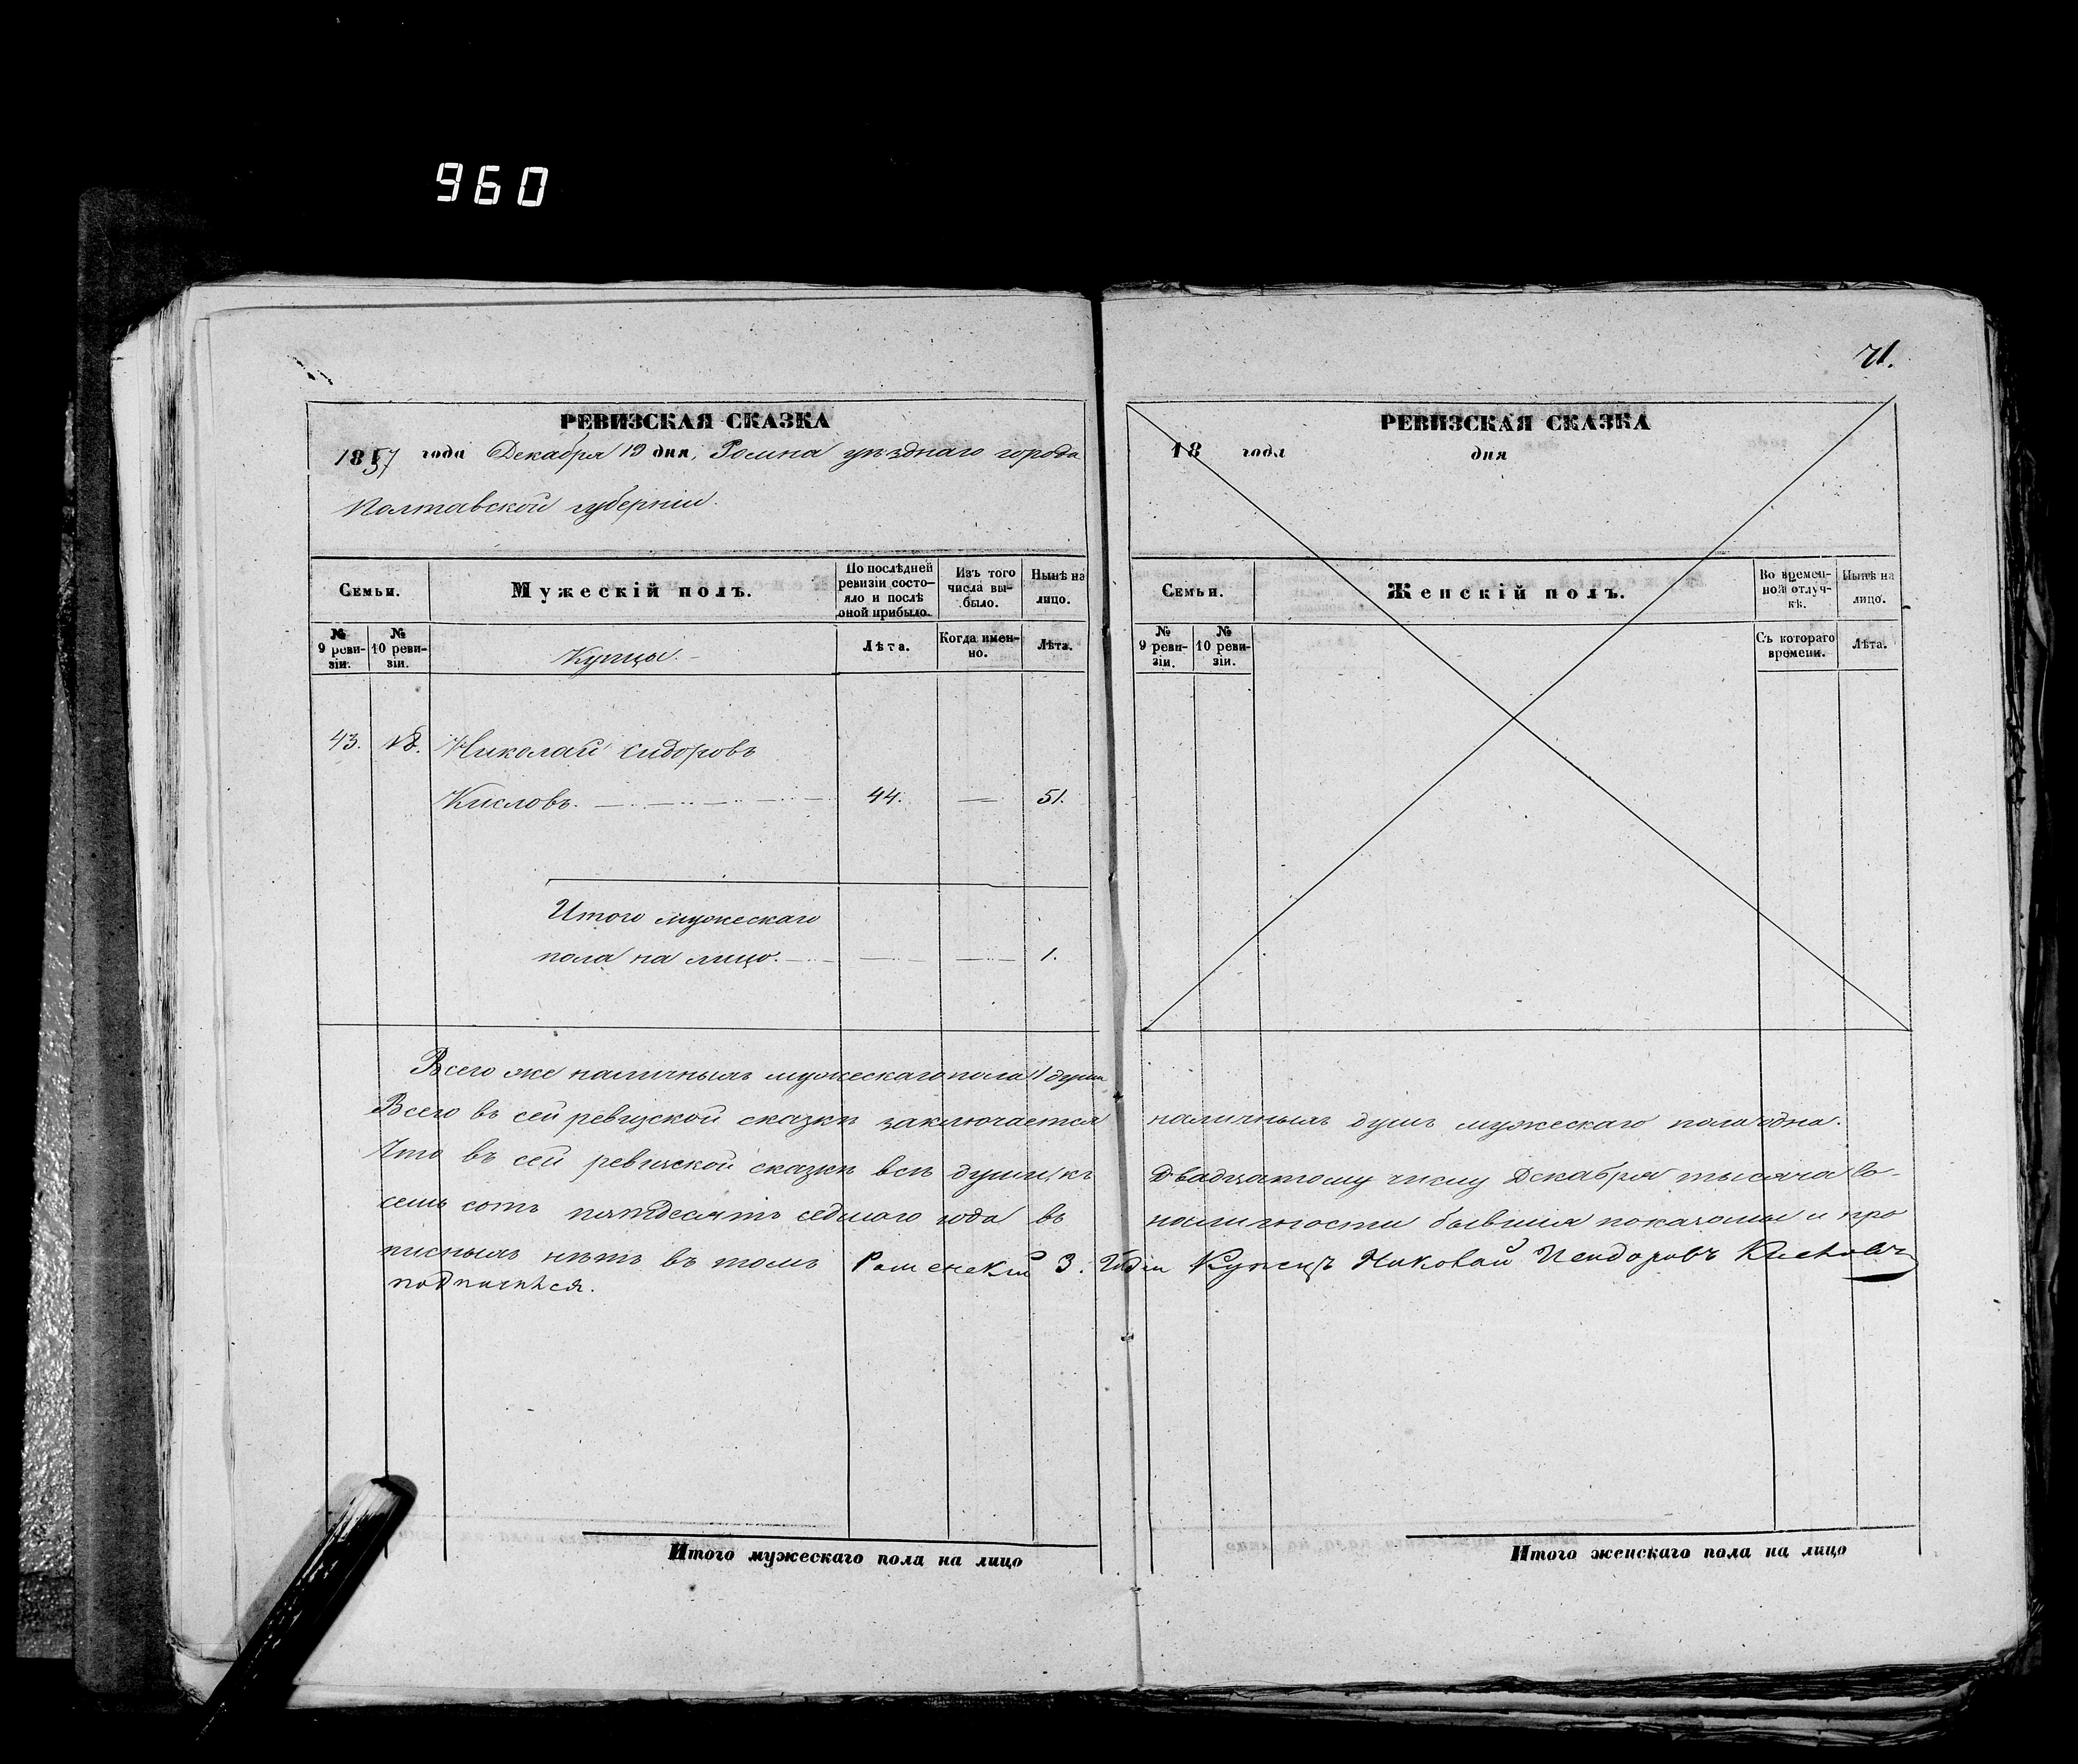 960
71.
РЕВИЗСКАЯ СКАЗКА
1857 года Декабря 19 дня, Ромна уѣзднаго города
Полтавской губерніи.
Семьи.
Мужескій полъ.
По послѣдней ревизіи состояло и послѣ оной прибыло.
Изъ того числа выбыло.
Нынѣ на лицо.
№ 9 ревизіи.
№ 10 ревизіи.
Купцы.
Лѣта.
Когда именно.
Лѣта.
43. 18. Николай Сидоровъ
Кисловъ. 44. — 51.
Итого мужескаго
пола на лицо. 1.
РЕВИЗСКАЯ СКАЗКА
18 года дня
Семьи.
Женскій полъ.
Во временной отлучкѣ.
Нынѣ на лицо.
№ 9 ревизіи.
№ 10 ревизіи.
Съ котораго времени.
Лѣта.
Всего же наличныхъ мужескаго пола 1 душа
Всего въ сей ревизской сказкѣ заключается наличныхъ душъ мужескаго пола одна.
Что въ сей ревизской сказкѣ всѣ души, къ двадцатому числу Декабря тысяча во-
семь сотъ пятдесятъ седмаго года въ наличности бывшія показаны и про
писныхъ нѣтъ въ томъ Роменский 3. Купецъ Николай Кисловъ
подписался.
Итого мужескаго пола на лицо
Итого женскаго пола на лицо